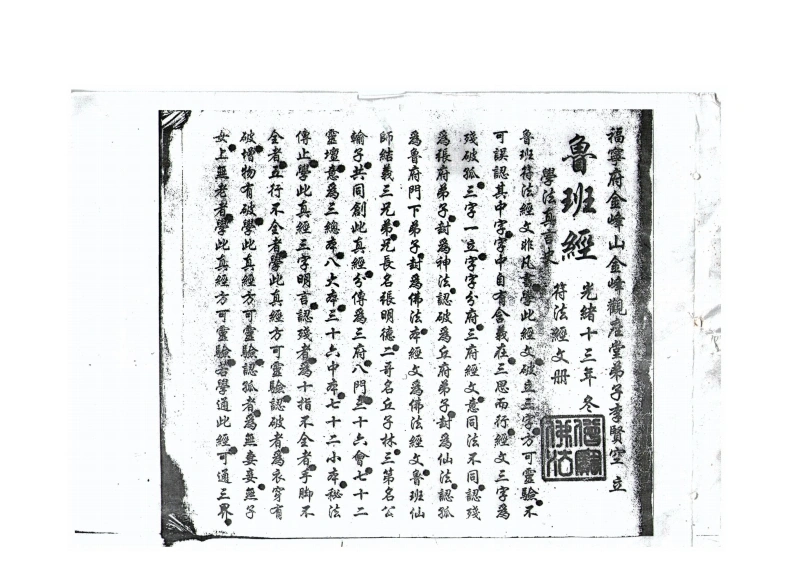 福寧府金峰山金峰觀君堂弟子李賢空立
魯班經
光緒十三年冬
學法真言文
符法經文冊
僧寶佛法
魯班符法經文非凡書學此經文破立三字方可靈驗不
可誤認其中字字中自有含義在三思而行經文三字為
殘破孤三字一立字字分府三府經文意同法不同認殘
為張府弟子封為神法認破為丘府弟子封為仙法認孤
為魯府門下弟子封為佛法本經文為佛法經文魯班仙
師結義三兄弟兄長名張明德二哥名丘子林三第名公
輸子共同創此真經分傳為三府八門三十六會七十二
靈壇意為三總本八大本三十六中本七十二小本秘法
傳止學此真經三字明言認殘者為十指不全者手脚不
全者五行不全者學此真經方可靈驗認破者為衣穿有
破增物有破學此真經方可靈驗認孤者為無妻妾無子
女上無老者學此真經方可靈驗若學通此經可通三界